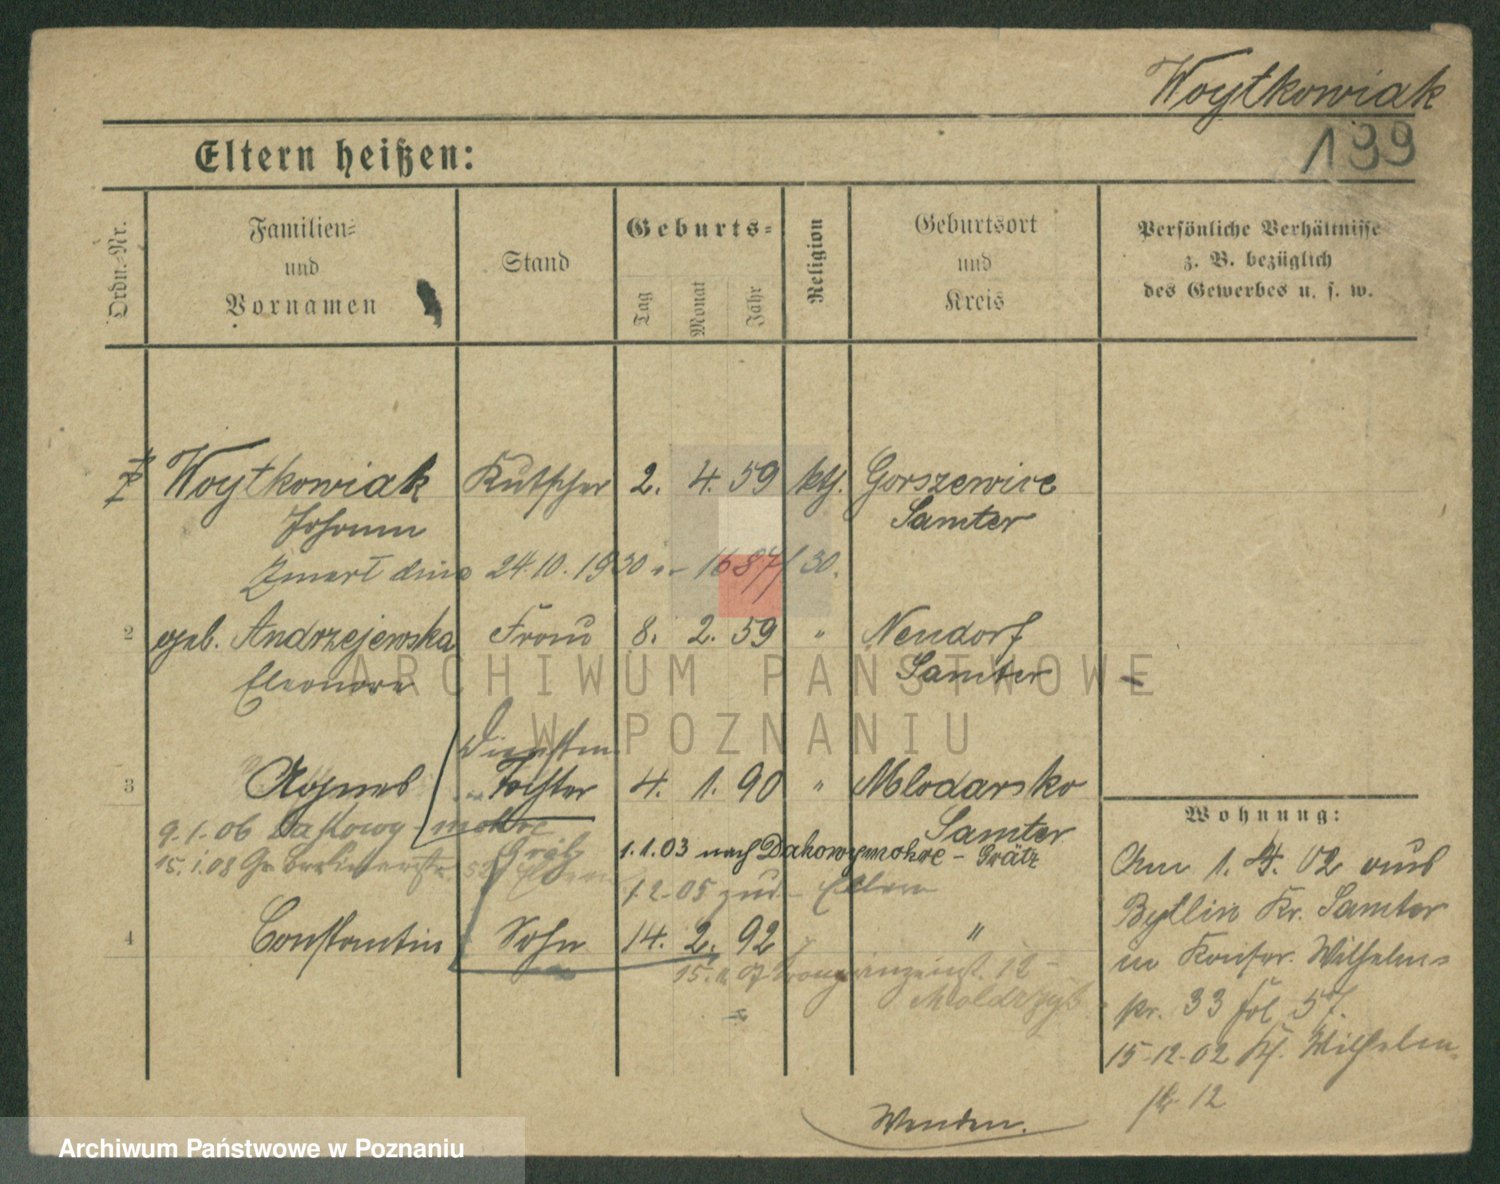 Woytkowiak
199
Eltern heißen:
Ordn.-Nr.
Familien- und Vornamen
Stand
Geburts-
Tag
Monat
Jahr
Religion
Geburtsort und Kreis
Persönliche Verhältnisse z. B. bezüglich des Gewerbes u. s. w.
Woytkowiak Kutscher 2. 4. 59 kth. Gorszewice
Johann Samter
Zmarł dnia 24.10.1930 1687/30.
2 geb. Andrzejewska Frau 8. 2. 59 " Neudorf
Eleonore Samter
Dienstm.
3 Agnes Tochter 4. 1. 90 " Mlodarsko
Samter
9.1.06 Dakowy-mokre
Grätz
1.1.03 nach Dakowymokre - Grätz
15.1.08 Gr. Berlinerstr. Eltern
1.2.05 zu d. Eltern
4 Constantin Sohn 14. 2. 92 "
12
Wohnung:
Am 1. 4. 02 aus
Bytlin Kr. Samter
in Wilhelm-
33 57.
15.12.02 Wilhelm-
str. 12
Wenden.
ARCHIWUM PAŃSTWOWE
W POZNANIU
Archiwum Państwowe w Poznaniu